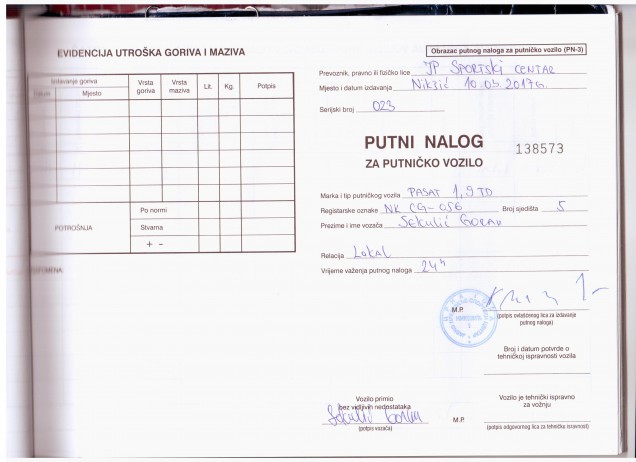 EVIDENCIJA UTROŠKA GORIVA I MAZIVA
Izdavanje goriva
Mjesto
Vrsta goriva
Vrsta maziva
Lit.
Kg.
Potpis
POTROŠNJA
Po normi
Stvarna
+ -
Obrazac putnog naloga za putničko vozilo (PN-3)
Prevoznik, pravno ili fizičko lice JP SPORTSKI CENTAR
Mjesto i datum izdavanja Nikšić 10.03.2017 G.
Serijski broj 023
PUTNI NALOG
ZA PUTNIČKO VOZILO
138573
Marka i tip putničkog vozila PASAT 1,9 TD
Registarske oznake NK CG-056 Broj sjedišta 5
Prezime i ime vozača SEKULIĆ GORAN
Relacija Lokal
Vrijeme važenja putnog naloga 24h
M.P.
(potpis ovlašćenog lica za izdavanje
putnog naloga)
Broj i datum potvrde o
tehničkoj ispravnosti vozila
Vozilo primio
bez vidljivih nedostataka
Sekulić Goran
(potpis vozača)
M.P.
Vozilo je tehnički ispravno
za vožnju
(potpis odgovornog lica za tehničku ispravnost)